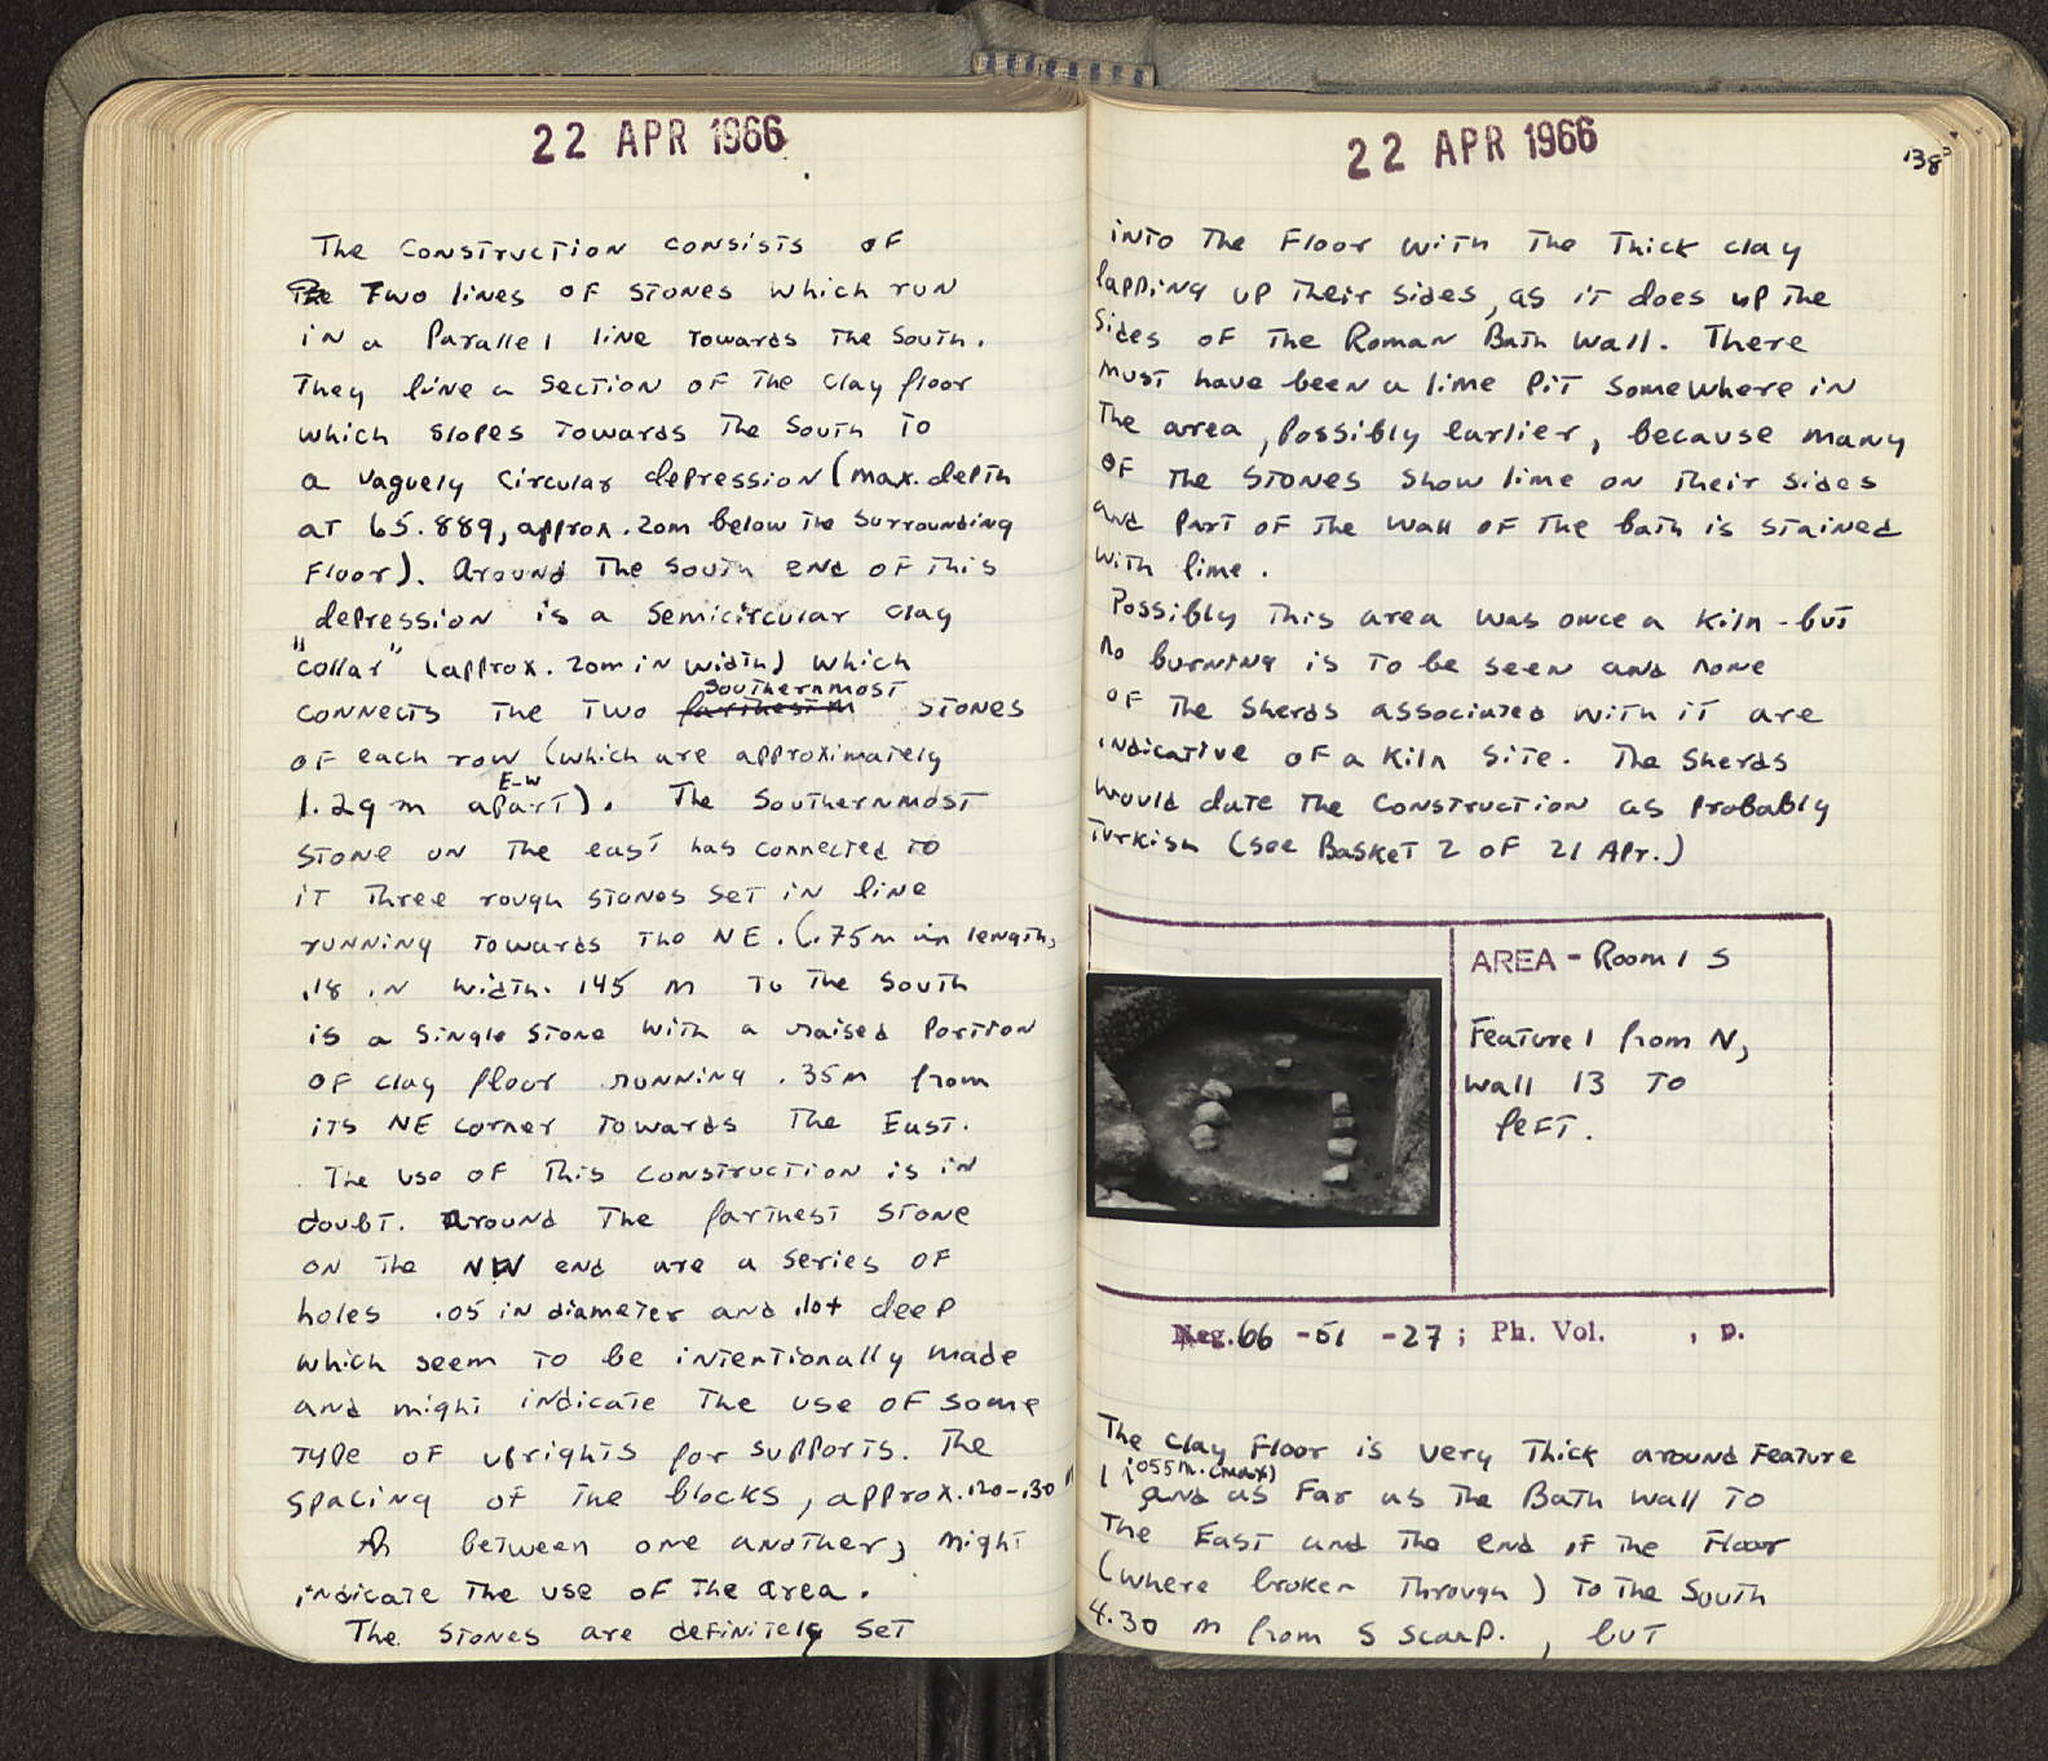 22 APR 1966
The construction consists of
The Two lines of stones which run
in a parallel line towards the South.
They line a section of the clay floor
which slopes towards the south to
a vaguely circular depression (max. depth
at 65.889, approx .20m below the surrounding
floor). Around the south end of this
depression is a semicircular clay
"collar" (approx. 20m in width) which
southernmost
connects the two farthest stones
of each row (which are approximately
E-W
1.29 m apart). The Southernmost
stone on the east has connected to
it three rough stones set in line
running towards the NE. (.75m in length,
.18 in width. .45 m to the south
is a single stone with a raised portion
of clay floor running .35m from
its NE corner towards the East.
The use of this construction is in
doubt. Around the farthest stone
on the NW end are a series of
holes .05 in diameter and .10+ deep
which seem to be intentionally made
and might indicate the use of some
type of uprights for supports. The
spacing of the blocks, approx. .20-.30
between one another, might
indicate the use of the area.
The stones are definitely set
22 APR 1966
138
into the floor with the thick clay
lapping up their sides, as it does up the
sides of the Roman Bath wall. There
must have been a lime pit somewhere in
the area, possibly earlier, because many
of the stones show lime on their sides
and part of the wall of the bath is stained
with lime.
Possibly this area was once a kiln - but
no burning is to be seen and none
of the sherds associated with it are
indicative of a kiln site. The sherds
would date the construction as probably
Turkish (see Basket 2 of 21 Apr.)
AREA - Room 1 S
Feature 1 from N,
wall 13 to
left.
Neg. 66 -51 -27; Ph. Vol. , p.
The clay floor is very thick around Feature
.055m. (max)
1 and as far as the Bath wall to
the East and the end of the floor
(where broken through) to the South
4.30 m from S scarp. , but